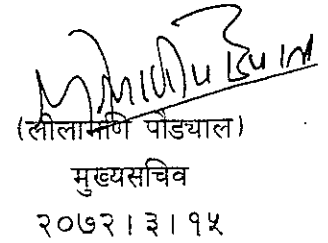 (लीलामणि पौड्याल)
मुख्यसचिव
२०७२।३।१५